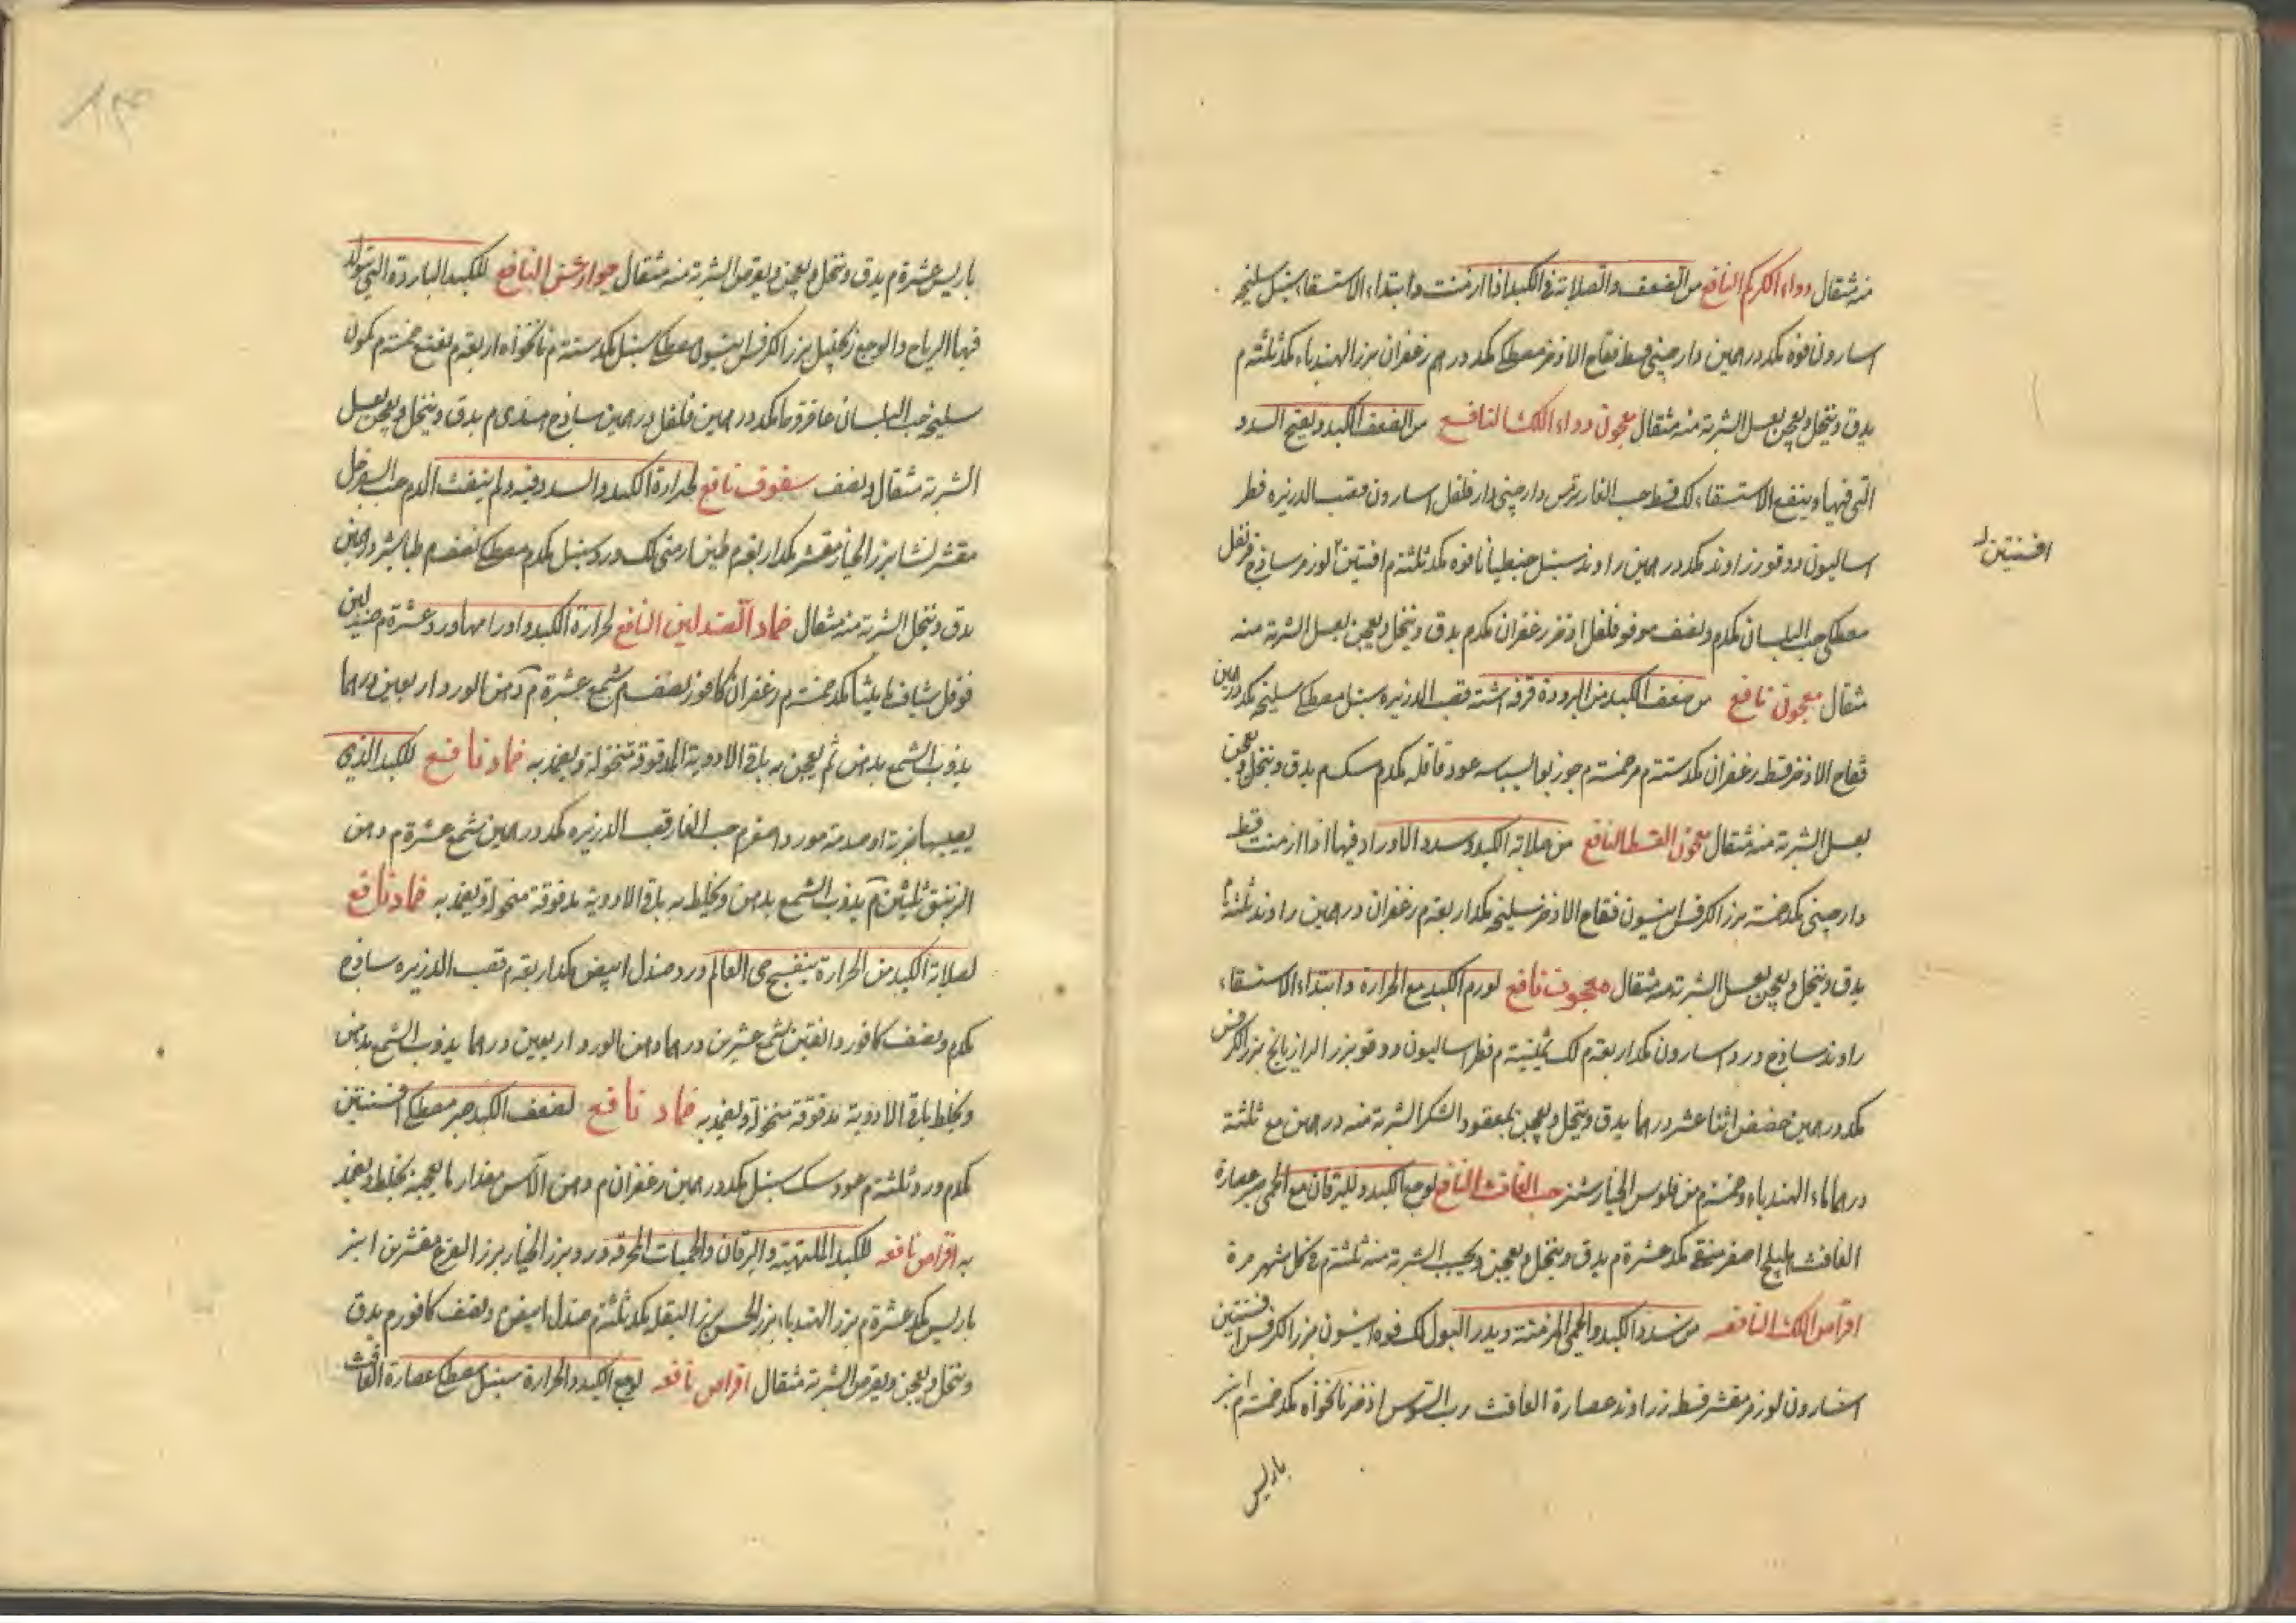 منه مثقال دواء الكركم النافع من الضعف والصلابة في الكبد اذا ازمنت وابتداء الاستسقاء سنبل سليخه
اسارون فوه مكد درهمين دارچينى قسط فقاح الاذخر مصطكى مكد درهم زعفران بزر الهندباء مكد ثلثة م
يدق وينخل ويعجن بعسل الشربة منه مثقال معجون دواء اللك النافع من الضعف الكبد ويفتح السدد
التى فيها وينفع الاستسقاء لك قسط حب الغار ترمس دارچينى دار فلفل اسارون قصب الذريره فطر
اساليون دوقو زراوند مكد درهمين راوند سنبل جنطيانا فوه مكد ثلثة م افسنتين لوز مر ساذج قرنفل
افسنتين
مصطكى حب البلسان مكد م ونصف مو فو فلفل اذخر زعفران مكد م يدق وينخل ويعجن بعسل الشربة منه
مثقال معجون نافع من ضعف الكبد من البرودة قرفه اشنه قصب الذريره سنبل مصطكى سليخه مكد درهمين
فقاح الاذخر قسط زعفران مكد ستة م مر خمسة م جوز بوا بسباسه عود قاقله مكد م سك م يدق وينخل ويعجن
بعسل الشربة منه مثقال معجون القسط النافع من صلابة الكبد وسدد الاوراد فيها اذا ازمنت قسط
دارچينى مكد خمسة بزر الكرفس انيسون فقاح الاذخر سليخه مكد اربعة م زعفران درهمين راوند ثلثة م
يدق وينخل ويعجن بعسل الشربة منه مثقال معجون نافع لورم الكبد مع الحرارة وابتداء الاستسقاء
راوند ساذج ورد اسارون مكد اربعة م لك ثمنية م فطر اساليون دوقو بزر الرازيانج بزر الكرفس
مكد درهمين حضض اثنا عشر درهما يدق وينخل ويعجن بمعقود السكر الشربة منه درهمين مع ثلثة
درهما ماء الهندباء وخمسة م من فلوس الخيار شنبر حب الغافث النافع لوجع الكبد ولليرقان مع الحمى صبر عصارة
الغافث هليلج اصفر منقى مكد عشرة م يدق وينخل ويعجن ويحبب الشربة منه ثلثة م في كل شهر مرة
اقراص اللك النافعه من سدد الكبد والحمى المزمنة ويدر البول لك فوه انيسون بزر الكرفس افسنتين
اسارون لوز مر مقشر قسط زراوند عصارة الغافث رب السوس اذخر نانخواه مكد خمسة م انبر
باريس
باريس عشرة م يدق وينخل ويعجن ويقرص الشربة منه مثقال جوارشن النافع للكبد الباردة التى يتولد
فيها الرياح والوجع زنجبيل بزر الكرفس انيسون مصطكى سنبل مكد ستة م نانخواه اربعة م نعنع خمسة م كمون
سليخه حب البلسان عاقرقرحا مكد درهمين فلفل درهمين ساذج هندى م يدق وينخل ويعجن بعسل
الشربة مثقال ونصف سفوف نافع لحرارة الكبد والسدد فيه ولم ينفث الدم حب السفرجل
مقشر نشا بزر الخيار مقشر مكد اربعة م طين ارمنى لك ورد سنبل مكد م مصطكى نصف م طباشير درهمين
يدق وينخل الشربة منه مثقال ضماد الصندلين النافع لحرارة الكبد واورامها ورد عشرة م صندلين
فوفل شياف ماميثا مكد خمسة م زعفران كافور نصف م شمع عشرة م دهن الورد اربعين درهما
يذوب الشمع بدهن ثم يعجن به باقى الادوية المدقوقة منخولة ويضمد به ضماد نافع للكبد الذى
يصيبها ضربة او صدمة مورد اصفر م حب الغار قصب الذريره مكد درهمين شمع عشرة م دهن
الزنبق ثلثين م يذوب الشمع بدهن ويخلط به باقى الادوية مدقوقة منخولة ويضمد به ضماد نافع
لصلابة الكبد من الحرارة بنفسج حى العالم ورد صندل ابيض مكد اربعة م قصب الذريره ساذج
مكد م ونصف كافور دانقين شمع عشرين درهما دهن الورد اربعين درهما يذوب الشمع بدهن
ويخلط باقى الادوية مدقوقة منخولة ويضمد به ضماد نافع لضعف الكبد صبر مصطكى افسنتين
مكد م ورد ثلثة م عود سك سنبل مكد درهمين زعفران م دهن الآس مقدار ما يعجن به يخلط ويضمد
به اقراص نافعه للكبد الملتهبة واليرقان والحميات المحرقه ورد بزر الخيار بزر القرع مقشرين انبر
باريس مكد عشرة م بزر الهندباء بزر الخس بزر البقله مكد ثلثة م صندل ابيض م ونصف كافور م يدق
وينخل ويعجن ويقرص الشربة مثقال اقراص نافعه لوجع الكبد والحرارة سنبل مصطكى عصارة الغافث